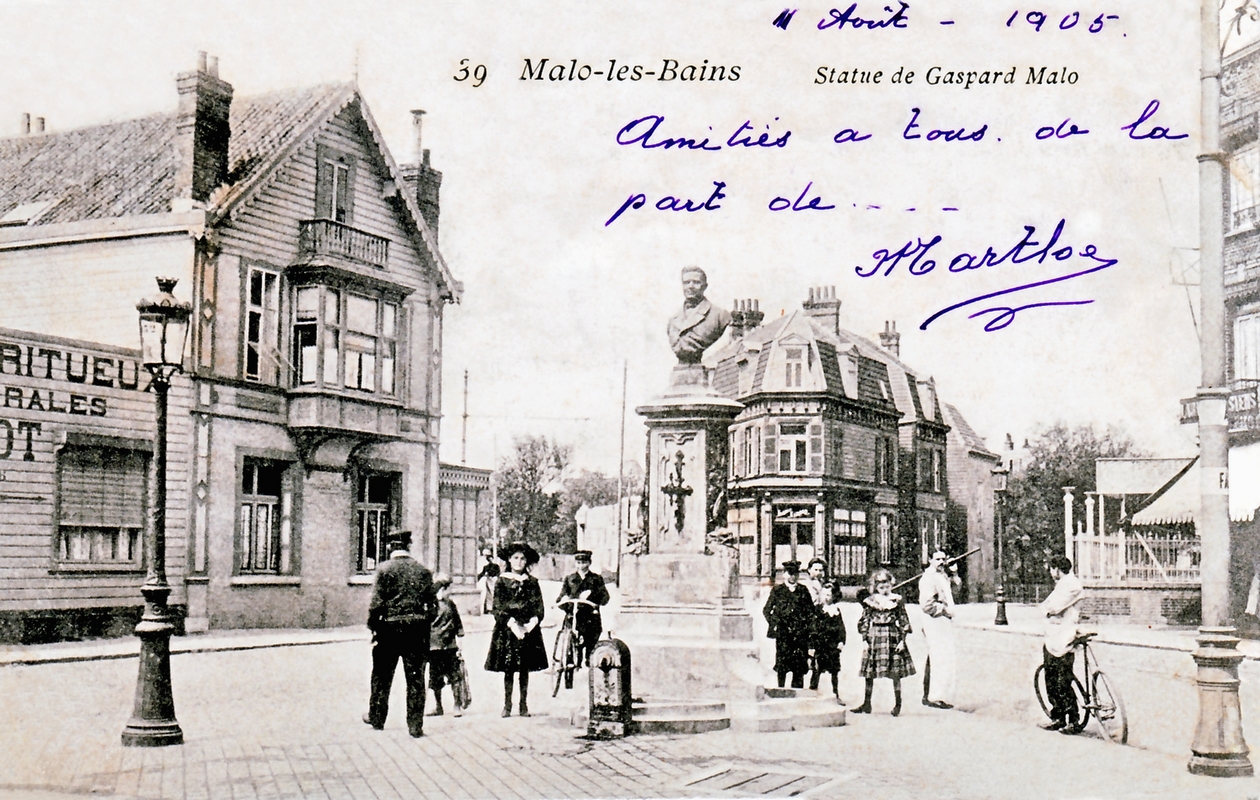 Août - 1905.
39 Malo-les-Bains Statue de Gaspard Malo
Amitiés a tous. de la
part de ----
Marthe
RITUEUX
RALES
OT